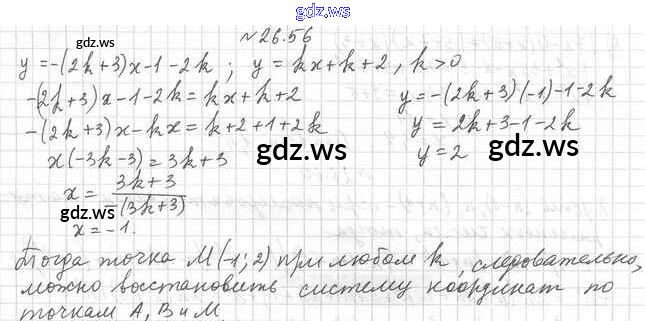 gdz.ws
№ 26.56
gdz.ws
y = -(2k+3)x-1-2k ; y = kx+k+2, k>0
-(2k+3)x-1-2k = kx+k+2
y = -(2k+3)(-1)-1-2k
gdz.ws
-(2k+3)x-kx = k+2+1+2k
y = 2k+3-1-2k
x(-3k-3) = 3k+3
gdz.ws
gdz.ws
y = 2
x = 3k+3 / -(3k+3)
gdz.ws
x = -1.
Тогда точка M(-1; 2) при любом k, следовательно,
можно восстановить систему координат по
точкам A, B и M